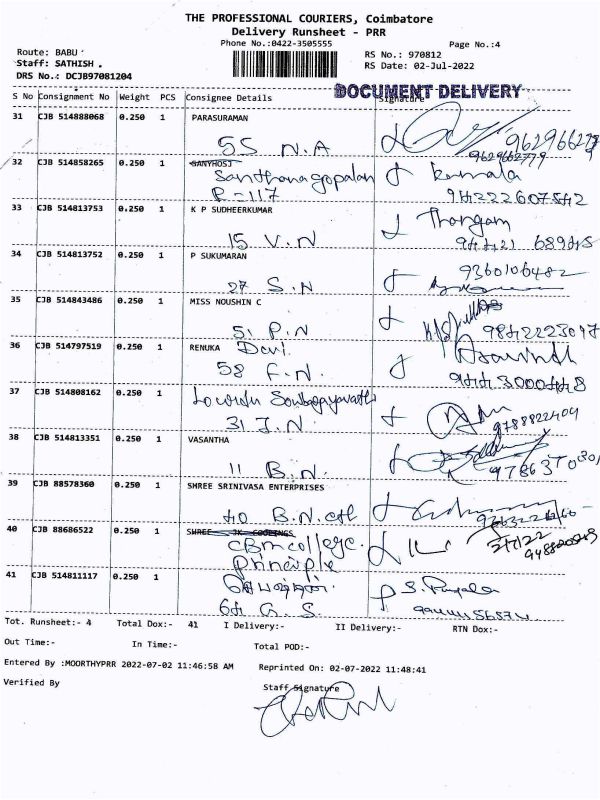 THE PROFESSIONAL COURIERS, Coimbatore
Delivery Runsheet - PRR
Phone No.:0422-3505555
Page No.:4
Route: BABU
Staff: SATHISH .
DRS No.: DCJB97081204
RS No.: 970812
RS Date: 02-Jul-2022
DOCUMENT DELIVERY
S No Consignment No Weight PCS Consignee Details Signature
31 CJB 514888068 0.250 1 PARASURAMAN
55 N.A
32 CJB 514858265 0.250 1 GANYHOST
Santhanagopalan Kamala
R-117
33 CJB 514813753 0.250 1 K P SUDHEERKUMAR Thangam
15 V.N
34 CJB 514813752 0.250 1 P SUKUMARAN 9360106482
27 S.N
35 CJB 514843486 0.250 1 MISS NOUSHIN C
51 P.N
36 CJB 514797519 0.250 1 RENUKA Devi Aravinth
58 F.N.
37 CJB 514808162 0.250 1
31 J.N 9788822404
38 CJB 514813351 0.250 1 VASANTHA
11 B.N.
39 CJB 88578360 0.250 1 SHREE SRINIVASA ENTERPRISES
40 B.N.
40 CJB 88686522 0.250 1 SHREE JK COOLINGS
CBM college. 2/7/22
Principle
41 CJB 514811117 0.250 1
64 G.S
Tot. Runsheet:- 4 Total Dox:- 41 I Delivery:- II Delivery:- RTN Dox:-
Out Time:- In Time:- Total POD:-
Entered By :MOORTHYPRR 2022-07-02 11:46:58 AM Reprinted On: 02-07-2022 11:48:41
Verified By Staff Signature